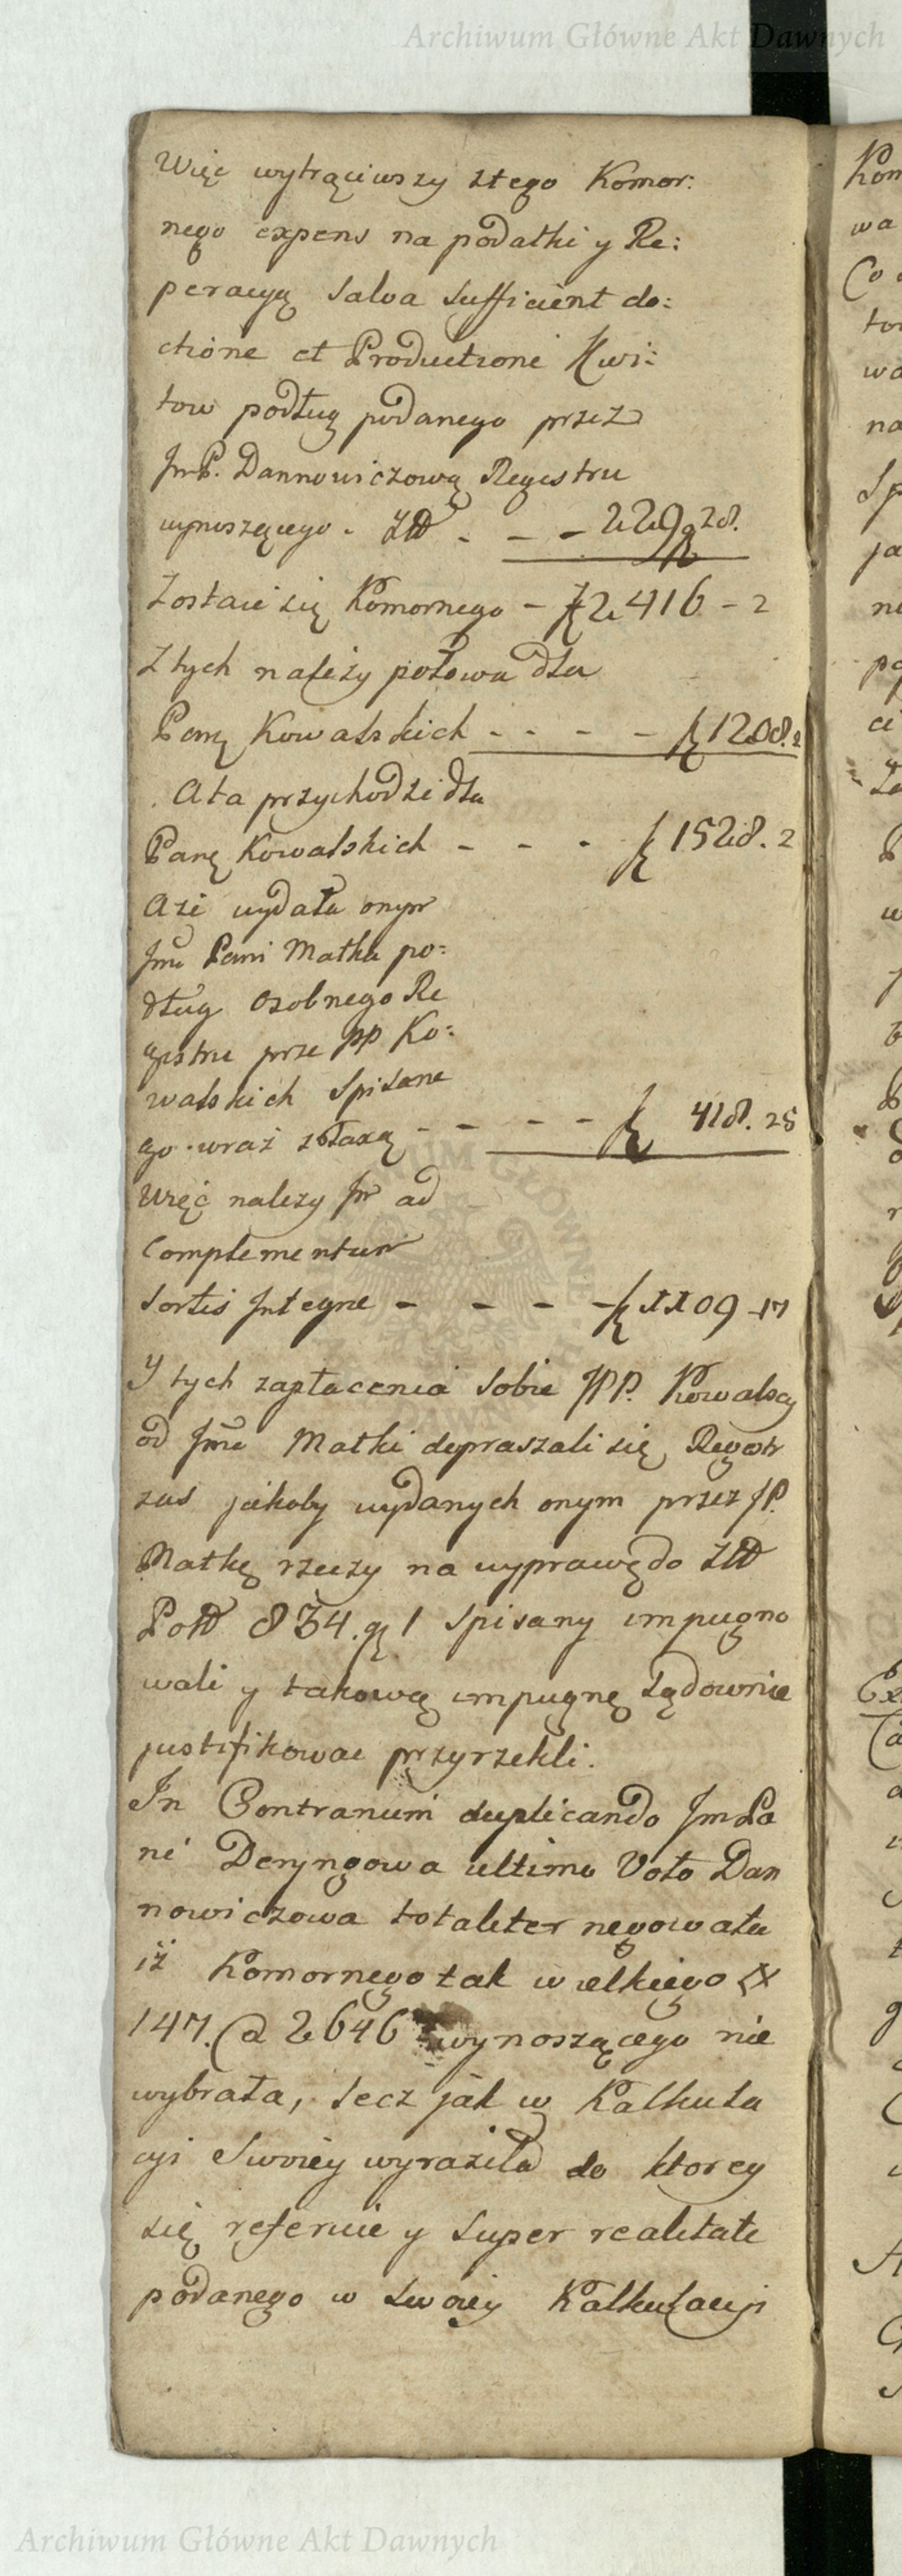 Archiwum Główne Akt Dawnych
Więc wytrąciwszy z tego Komor:
nego expens na podatki y Re:
peracyą Salva Sufficient de:
ctione et Productione Kwi:
tow podług podanego przez
JmP. Dannowiczową Regestru
wynoszącego - Zł - - - 229 g 28.
Zostaie się Komornego - zł 2416 - 2
Z tych należy połowa dla
Panq Kowalskich - - - - zł 1208. 2
. Ata przychodzi dla
Panq Kowalskich - - - zł 1528. 2
Aże wydała onym
Jmć Pani Matka po:
dług Osobnego Re
gestru prze PP Ko:
walskich Spisane
go wraz z Taxą - - - - zł 418. 25
Więc należy Jm ad
Complementum
Sortis Integre - - - - zł 1109 - 17
Y tych zapłacenia sobie JPP. Kowalscy
od Jmć Matki depraszali się Regestr
zas jakoby wydanych onym przez JP.
Matkę rzeczy na wyprawę do Zł
Pol 834. g 1 Spisany impugno
wali y takową impugnę Sądownie
justifikowac przyrzekli.
In Contrarium duplicando Jm Pa
ni Deryngowa ultimo Voto Dan
nowiczowa totaliter negowała
iż Komornego tak wielkiego
147. @ 2646 wynoszącego nie
wybrała, lecz jak w Kalkula
cyi Swoiey wyraziła do ktorey
się referuie y Super realitate
podanego w Swoiey Kalkulacyi
Archiwum Główne Akt Dawnych